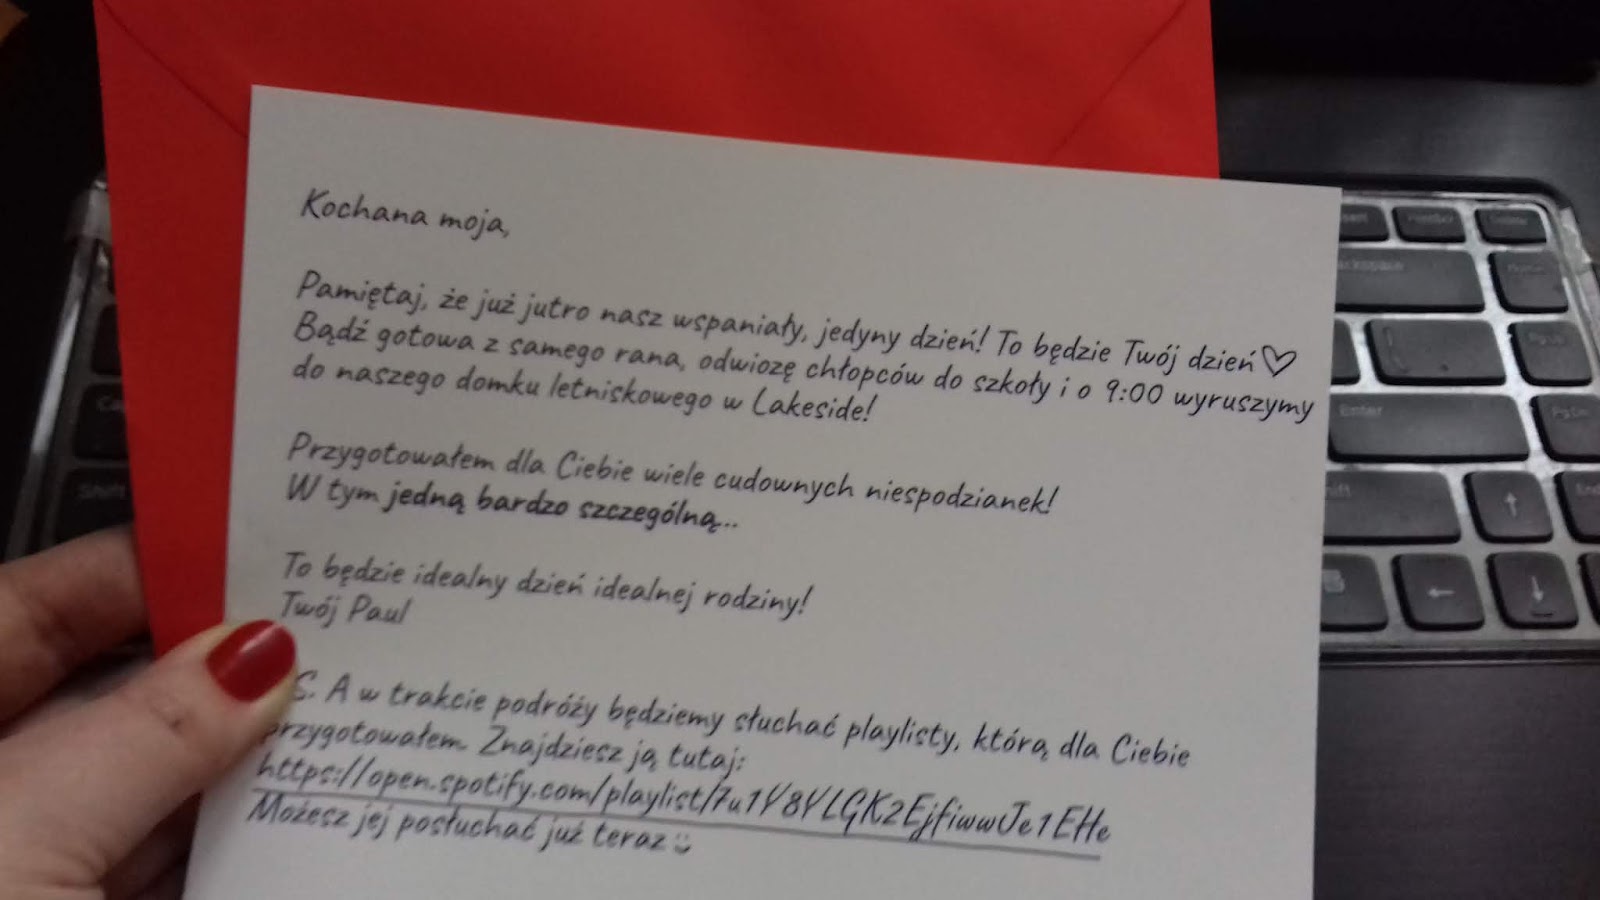 Kochana moja,
Pamiętaj, że już jutro nasz wspaniały, jedyny dzień! To będzie Twój dzień♡
Bądź gotowa z samego rana, odwiozę chłopców do szkoły i o 9:00 wyruszymy
do naszego domku letniskowego w Lakeside!
Przygotowałem dla Ciebie wiele cudownych niespodzianek!
W tym jedną bardzo szczególną...
To będzie idealny dzień idealnej rodziny!
Twój Paul
S. A w trakcie podróży będziemy słuchać playlisty, którą dla Ciebie
przygotowałem. Znajdziesz ją tutaj:
https://open.spotify.com/playlist/7u1Y8YLGK2EjfiwwJe1EHe
Możesz jej posłuchać już teraz :)
Delete
Backspace
Enter
Shift
PgDn
End
↑
←
↓